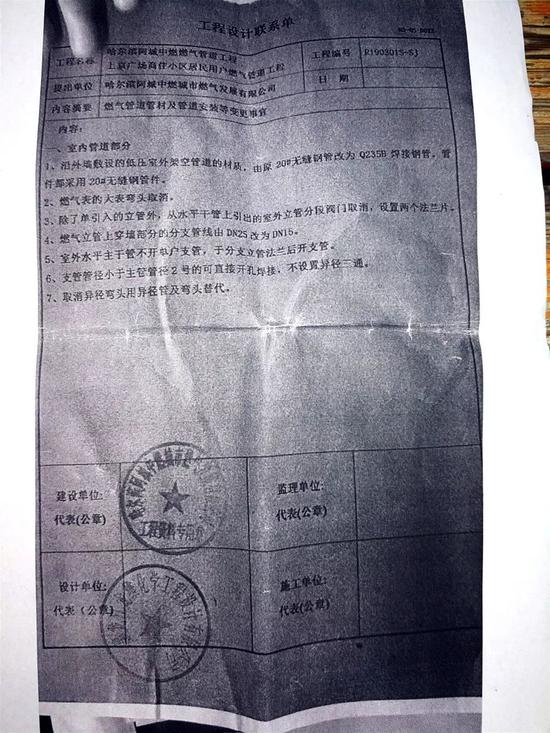 工程设计联系单
工程名称
哈尔滨阿城中燃燃气管道工程
上京广场商住小区居民用户燃气管道工程
工程编号
R190301S-SJ
提出单位
哈尔滨阿城中燃城市燃气发展有限公司
日 期
内容摘要
燃气管道管材及管道安装等变更事宜
内容:
一、室内管道部分
1、沿外墙敷设的低压室外架空管道的材质，由原 20#无缝钢管改为 Q235B 焊接钢管，管
件都采用 20#无缝钢管件。
2、燃气表的大表弯头取消。
3、除了单引入的立管外，从水平干管上引出的室外立管分段阀门取消，设置两个法兰片。
4、燃气立管上穿墙部分的分支管线由 DN25 改为 DN15。
5、室外水平主干管不开单户支管，于分支立管法兰后开支管。
6、支管管径小于主管管径 2 号的可直接开孔焊接，不设置异径三通。
7、取消异径弯头用异径管及弯头替代。
建设单位:
代表(公章)
监理单位:
代表(公章)
工程资料专用章
设计单位:
代表（公章）
施工单位:
代表(公章)
化学工程设计有限